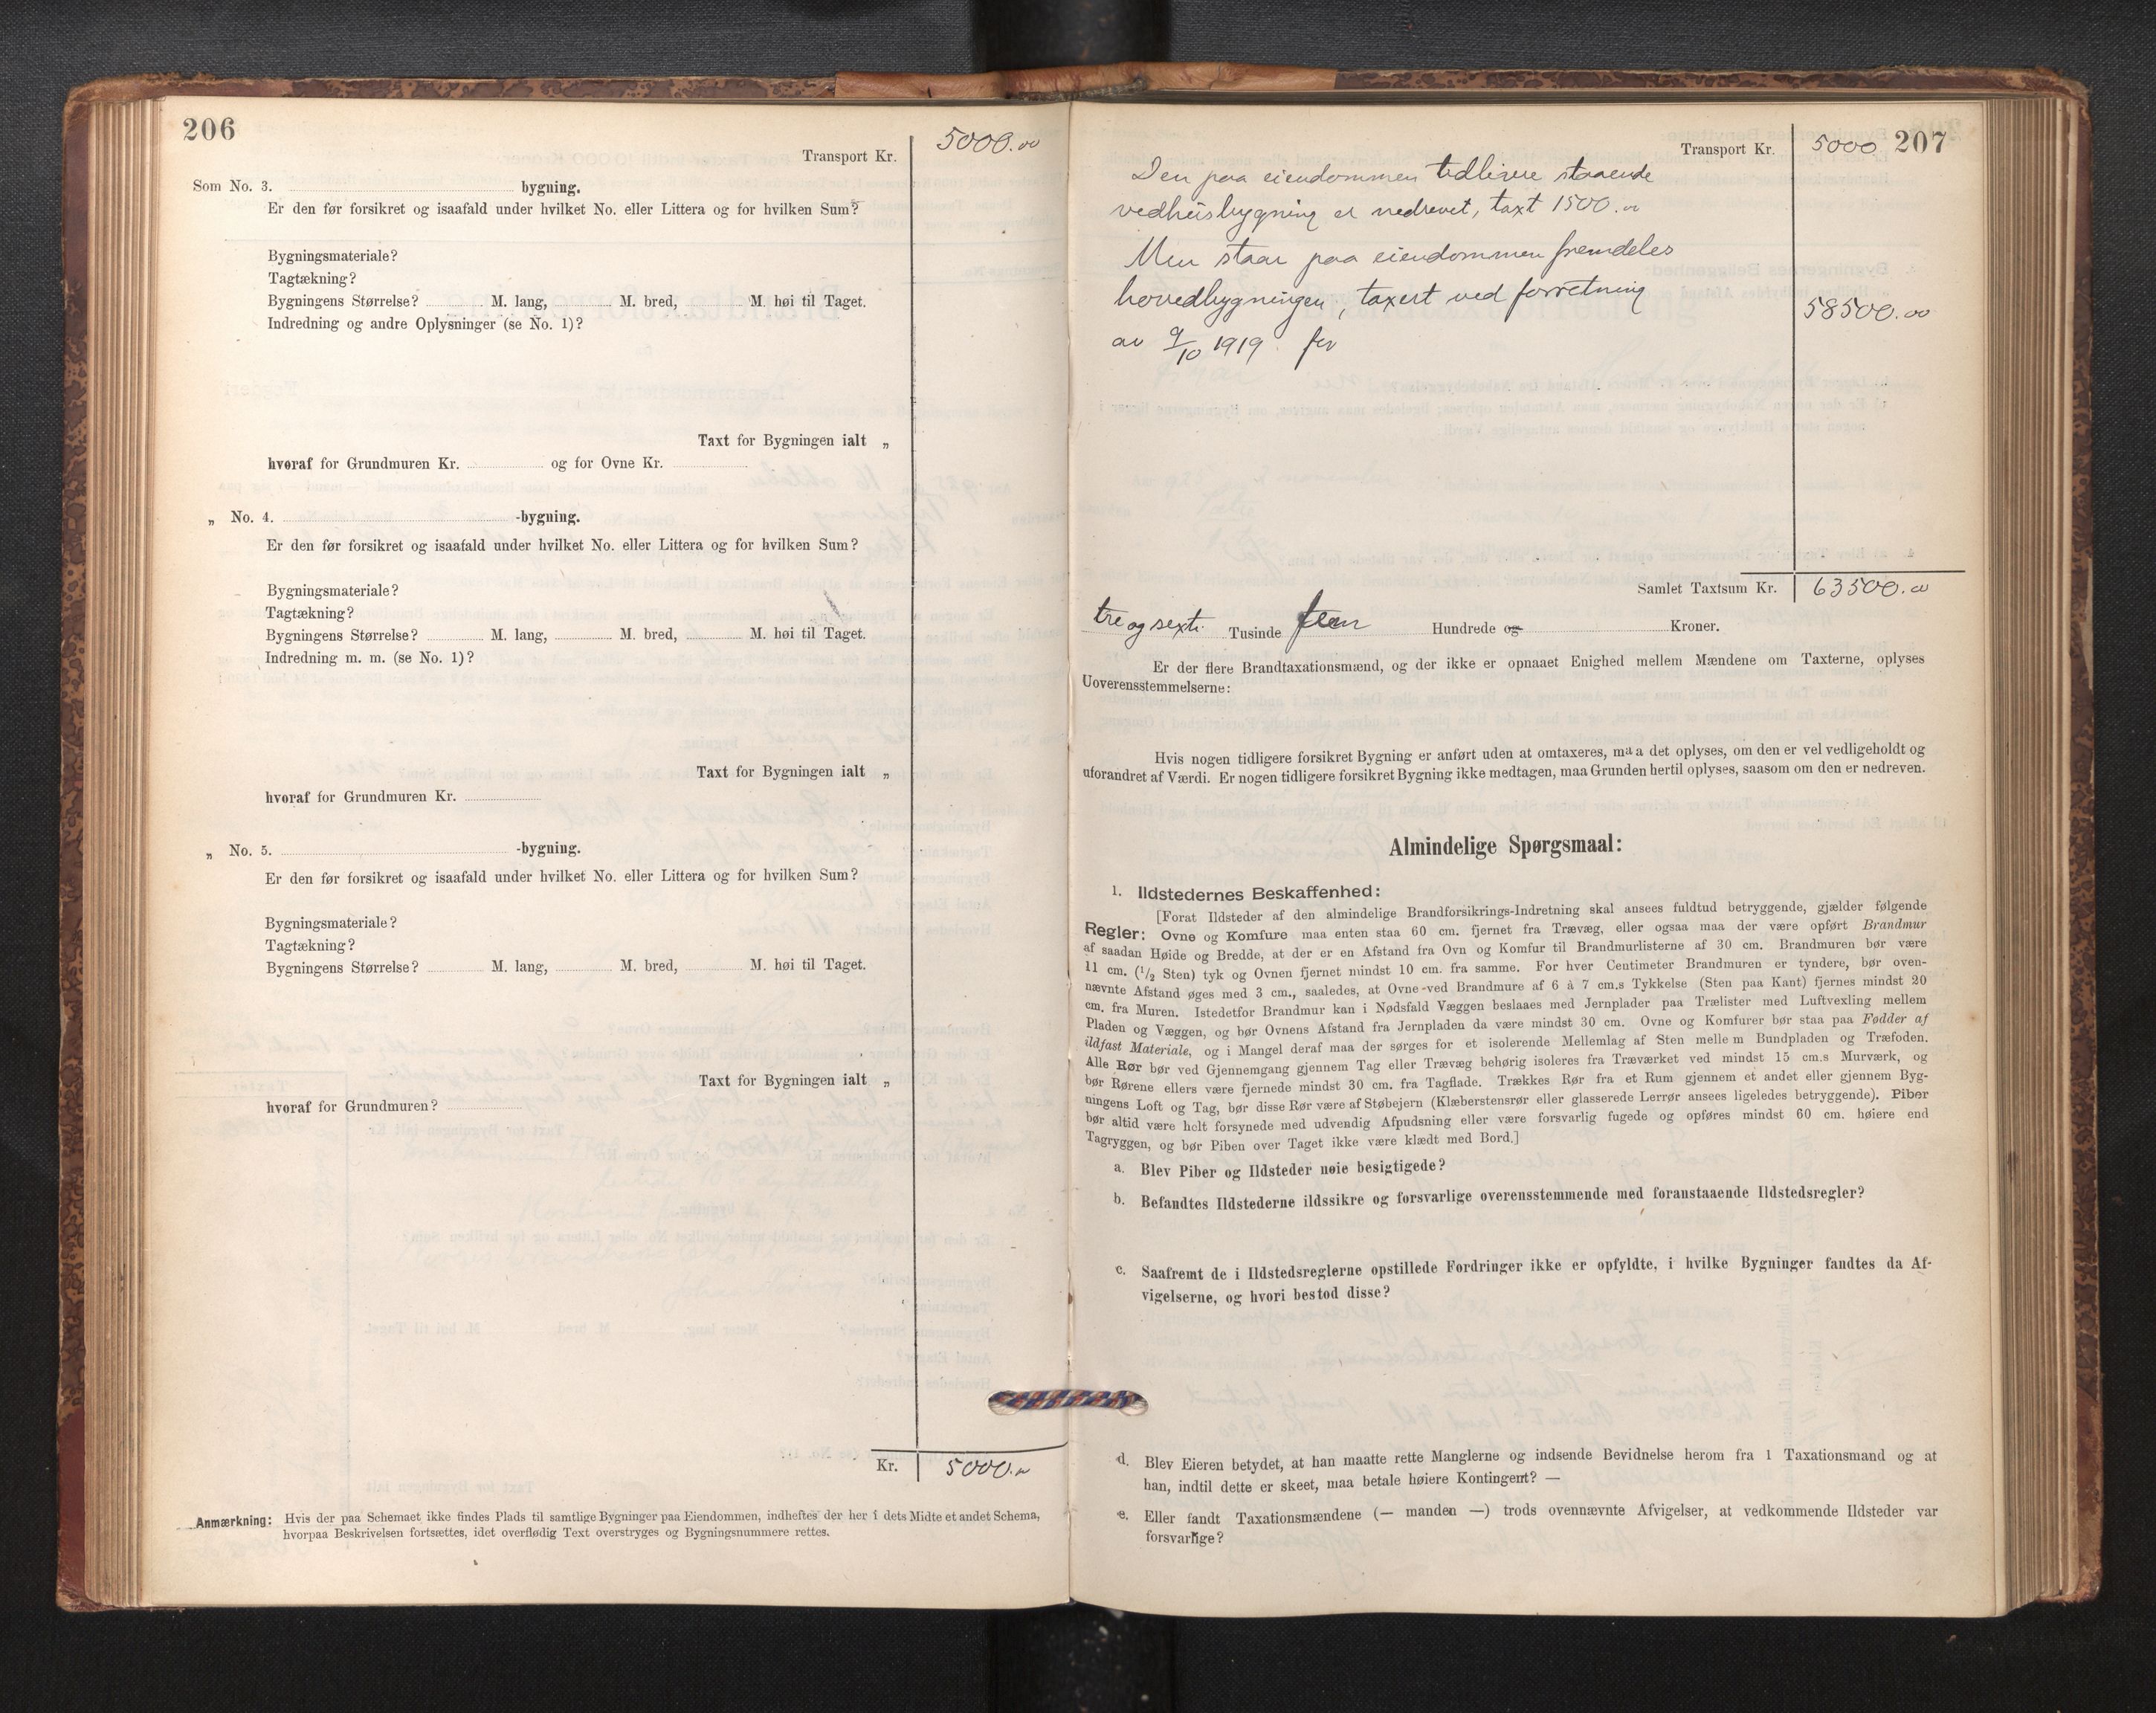 206
Transport Kr. 5000.00
Som No. 3. bygning.
Er den før forsikret og isaafald under hvilket No. eller Littera og for hvilken Sum?
Bygningsmateriale?
Tagtækning?
Bygningens Størrelse? M. lang, M. bred, M. høi til Taget.
Indredning og andre Oplysninger (se No. 1)?
Taxt for Bygningen ialt „
hvoraf for Grundmuren Kr. og for Ovne Kr.
„ No. 4. -bygning.
Er den før forsikret og isaafald under hvilket No. eller Littera og for hvilken Sum?
Bygningsmateriale?
Tagtækning?
Bygningens Størrelse? M. lang, M. bred, M. høi til Taget.
Indredning m. m. (se No. 1)?
Taxt for Bygningen ialt „
hvoraf for Grundmuren Kr.
„ No. 5. -bygning.
Er den før forsikret og isaafald under hvilket No. eller Littera og for hvilken Sum?
Bygningsmateriale?
Tagtækning?
Bygningens Størrelse? M. lang, M. bred, M. høi til Taget.
Taxt for Bygningen ialt „
hvoraf for Grundmuren?
Kr. 5000.00
Anmærkning: Hvis der paa Schemaet ikke findes Plads til samtlige Bygninger paa Eiendommen, indheftes der her i dets Midte et andet Schema,
hvorpaa Beskrivelsen fortsættes, idet overflødig Text overstryges og Bygningsnummere rettes.
Transport Kr. 5000 207
Den paa eiendommen tidligere staaende
vedhusbygning er nedrevet, taxt 1500.00
Men staar paa eiendommen fremdeles
hovedbygningen, taxert ved forretning
av 9/10 1919. for 58500.00
Samlet Taxtsum Kr. 63500.00
tre og sexti Tusinde fem Hundrede og Kroner.
Er der flere Brandtaxationsmænd, og der ikke er opnaaet Enighed mellem Mændene om Taxterne, oplyses
Uoverensstemmelserne:
Hvis nogen tidligere forsikret Bygning er anført uden at omtaxeres, maa det oplyses, om den er vel vedligeholdt og
uforandret af Værdi. Er nogen tidligere forsikret Bygning ikke medtagen, maa Grunden hertil oplyses, saasom om den er nedreven.
Almindelige Spørgsmaal:
1. Ildstedernes Beskaffenhed:
[Forat Ildsteder af den almindelige Brandforsikrings-Indretning skal ansees fuldtud betryggende, gjælder følgende
Regler: Ovne og Komfure maa enten staa 60 cm. fjernet fra Trævæg, eller ogsaa maa der være opført Brandmur
af saadan Høide og Bredde, at der er en Afstand fra Ovn og Komfur til Brandmurlisterne af 30 cm. Brandmuren bør være
11 cm. (1/2 Sten) tyk og Ovnen fjernet mindst 10 cm. fra samme. For hver Centimeter Brandmuren er tyndere, bør oven-
nævnte Afstand øges med 3 cm., saaledes, at Ovne ved Brandmure af 6 à 7 cm.s Tykkelse (Sten paa Kant) fjernes mindst 20
cm. fra Muren. Istedetfor Brandmur kan i Nødsfald Væggen beslaaes med Jernplader paa Trælister med Luftvexling mellem
Pladen og Væggen, og bør Ovnens Afstand fra Jernpladen da være mindst 30 cm. Ovne og Komfurer bør staa paa Fødder af
ildfast Materiale, og i Mangel deraf maa der sørges for et isolerende Mellemlag af Sten mellem Bundpladen og Træfoden.
Alle Rør bør ved Gjennemgang gjennem Tag eller Trævæg behørig isoleres fra Træværket ved mindst 15 cm.s Murværk, og
bør Rørene ellers være fjernede mindst 30 cm. fra Tagflade. Trækkes Rør fra et Rum gjennem et andet eller gjennem Byg-
ningens Loft og Tag, bør disse Rør være af Støbejern (Klæberstensrør eller glasserede Lerrør ansees ligeledes betryggende). Piber
bør altid være helt forsynede med udvendig Afpudsning eller være forsvarlig fugede og opføres mindst 60 cm. høiere end
Tagryggen, og bør Piben over Taget ikke være klædt med Bord.]
a. Blev Piber og Ildsteder nøie besigtigede?
b. Befandtes Ildstederne ildssikre og forsvarlige overensstemmende med foranstaaende Ildstedsregler?
c. Saafremt de i Ildstedsreglerne opstillede Fordringer ikke er opfyldte, i hvilke Bygninger fandtes da Af-
vigelserne, og hvori bestod disse?
d. Blev Eieren betydet, at han maatte rette Manglerne og indsende Bevidnelse herom fra 1 Taxationsmand og at
han, indtil dette er skeet, maa betale høiere Kontingent? —
e. Eller fandt Taxationsmændene (— manden —) trods ovennævnte Afvigelser, at vedkommende Ildsteder var
forsvarlige?